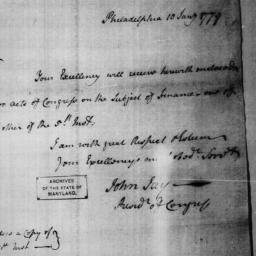 Philadelphia 10 Jany 1779
Your Excellency will receive herewith enclosed
acts of Congress on the Subject of Finance one of
other of the 5th Inst.
I am with great Respect & Esteem
Your Excellencys
John Jay
Presidt of Congress
ARCHIVES
OF THE STATE OF
MARYLAND.
a Copy of